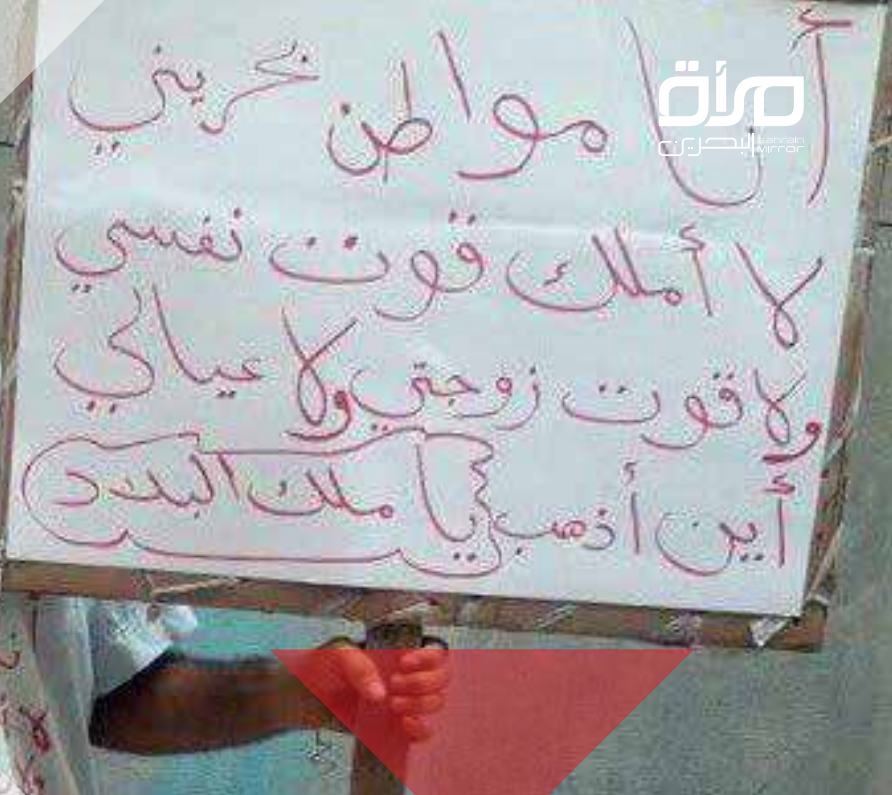 أنا مواطن بحريني
لا أملك قوت نفسي
ولا قوت زوجتي ولا عيالي
أين أذهب يا ملك البلاد
مرآة البحرين
Bahrain Mirror